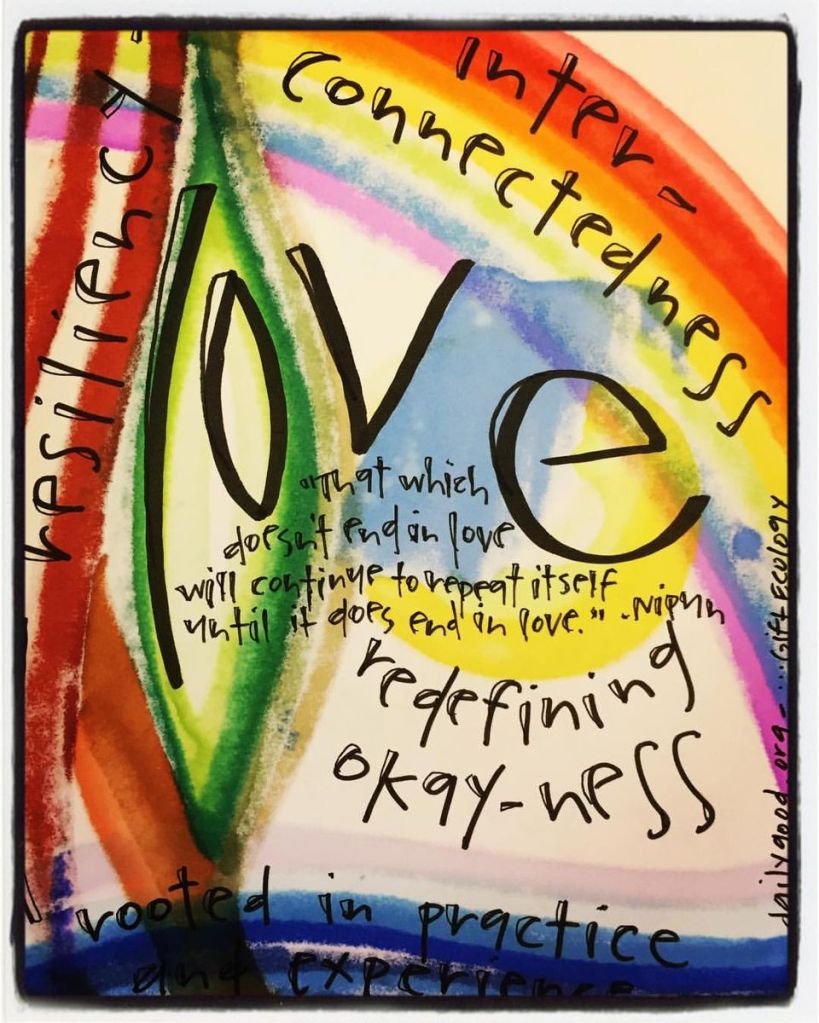 resiliency-
Inter-
connectedness
love
"That which
doesn't end in love
will continue to repeat itself
until it does end in love." -Nipun
redefining
okay-ness
rooted in practice
and experience
dailygood.org - ...Gift Ecology